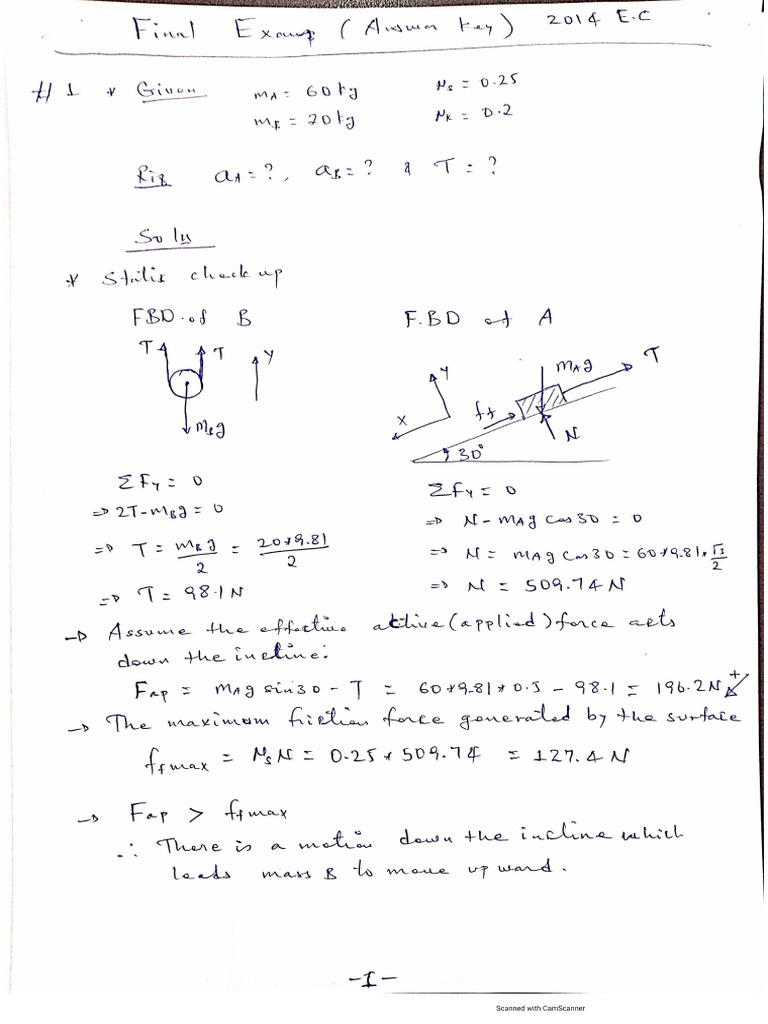 Final Exam (Answer key) 2014 E.C
#1 * Given mA = 60kg μs = 0.25
mB = 20kg μk = 0.2
Riq aA = ?, aB = ? & T = ?
Soln
* Static check up
FBD of B F.BD of A
T T Y mAg T
Y ff
X N
mBg 30°
ΣFy = 0 ΣFy = 0
⇒ 2T - mBg = 0 ⇒ N - mAg cos30 = 0
⇒ T = mBg/2 = 20*9.81/2 ⇒ N = mAg cos30 = 60*9.81*√3/2
⇒ T = 98.1N ⇒ N = 509.74N
→ Assume the effective active (applied) force acts
down the incline:
Fap = mAg sin30 - T = 60*9.81*0.5 - 98.1 = 196.2N +↙
→ The maximum friction force generated by the surface
ffmax = μsN = 0.25*509.74 = 127.4 N
→ Fap > ffmax
∴ There is a motion down the incline which
leads mass B to move upward.
-1-
Scanned with CamScanner